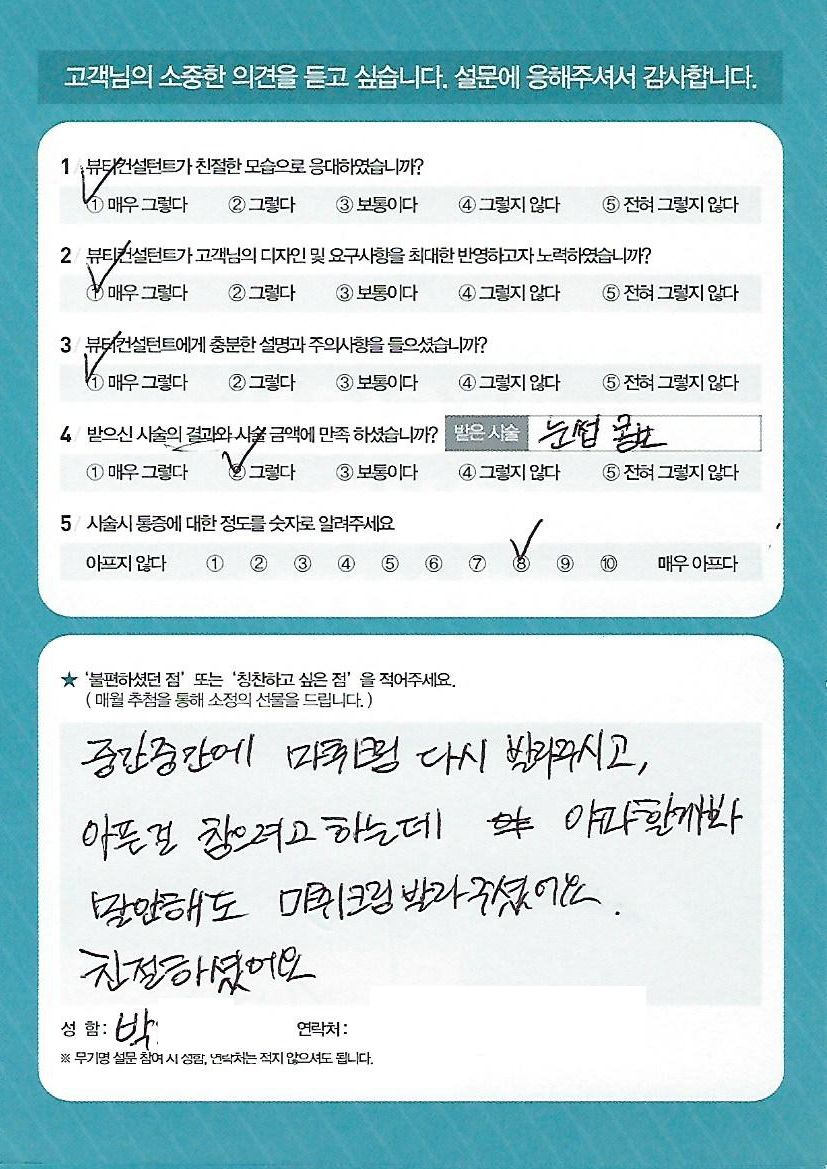 고객님의 소중한 의견을 듣고 싶습니다. 설문에 응해주셔서 감사합니다.
1 / 뷰티컨설턴트가 친절한 모습으로 응대하였습니까?
① 매우 그렇다 ② 그렇다 ③ 보통이다 ④ 그렇지 않다 ⑤ 전혀 그렇지 않다
2 / 뷰티컨설턴트가 고객님의 디자인 및 요구사항을 최대한 반영하고자 노력하였습니까?
① 매우 그렇다 ② 그렇다 ③ 보통이다 ④ 그렇지 않다 ⑤ 전혀 그렇지 않다
3 / 뷰티컨설턴트에게 충분한 설명과 주의사항을 들으셨습니까?
① 매우 그렇다 ② 그렇다 ③ 보통이다 ④ 그렇지 않다 ⑤ 전혀 그렇지 않다
4 / 받으신 시술의 결과와 시술 금액에 만족 하셨습니까? 받은 시술 눈썹 콤보
① 매우 그렇다 ② 그렇다 ③ 보통이다 ④ 그렇지 않다 ⑤ 전혀 그렇지 않다
5 / 시술시 통증에 대한 정도를 숫자로 알려주세요
아프지 않다 ① ② ③ ④ ⑤ ⑥ ⑦ ⑧ ⑨ ⑩ 매우 아프다
★ '불편하셨던 점' 또는 '칭찬하고 싶은 점' 을 적어주세요.
( 매월 추첨을 통해 소정의 선물을 드립니다. )
중간중간에 마취크림 다시 발라주시고,
아픈걸 참으려고 하는데 아파할까봐
말안해도 마취크림 발라주셨어요.
친절하셨어요
성 함 : 박 연락처 :
※ 무기명 설문 참여 시 성함, 연락처는 적지 않으셔도 됩니다.